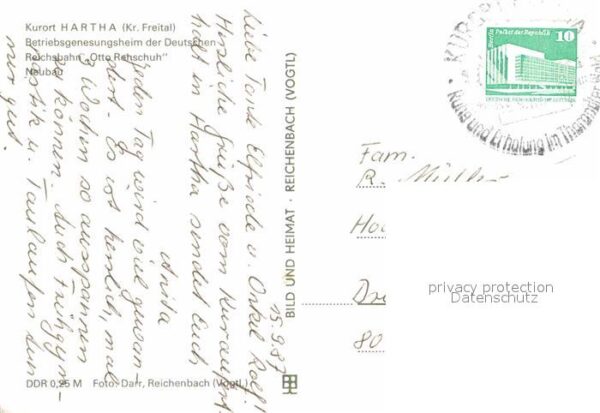 Kurort HARTHA (Kr. Freital)
Betriebsgenesungsheim der Deutschen
Reichsbahn "Otto Rehschuh"
Neubau
15.9.87
Liebe Tante Elfriede u. Onkel Rolf!
Herzliche Grüße vom Kuraufent-
halt in Hartha sendet Euch
Anita
Jeden Tag wird viel gewan-
dert. Es ist herrlich, mal
Wochen so ausspannen
zu können. Auch Frühgym-
nastik u. Taulaufen tun
mir gut.
DDR 0,25 M Foto: Darr, Reichenbach (Vogtl.)
BILD UND HEIMAT · REICHENBACH (VOGTL)
Berlin Palast der Republik
10
DEUTSCHE DEMOKRATISCHE REPUBLIK
KURORT HARTHA
Ruhe und Erholung im Tharandter Wald
Fam.
R. Müller
Dre
80
privacy protection
Datenschutz